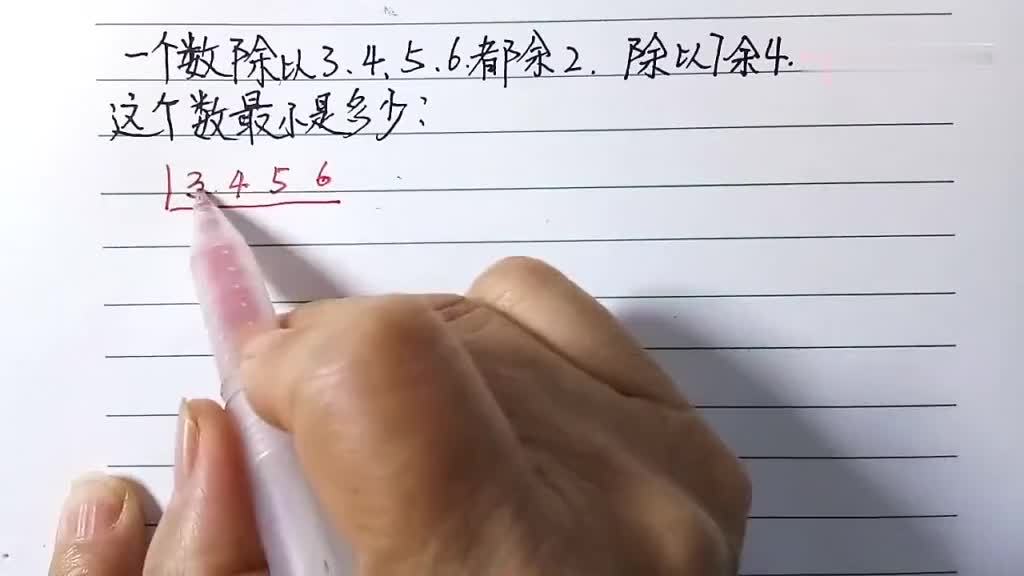 一个数除以3、4、5、6都余2. 除以7余4.
这个数最小是多少:
3 4 5 6